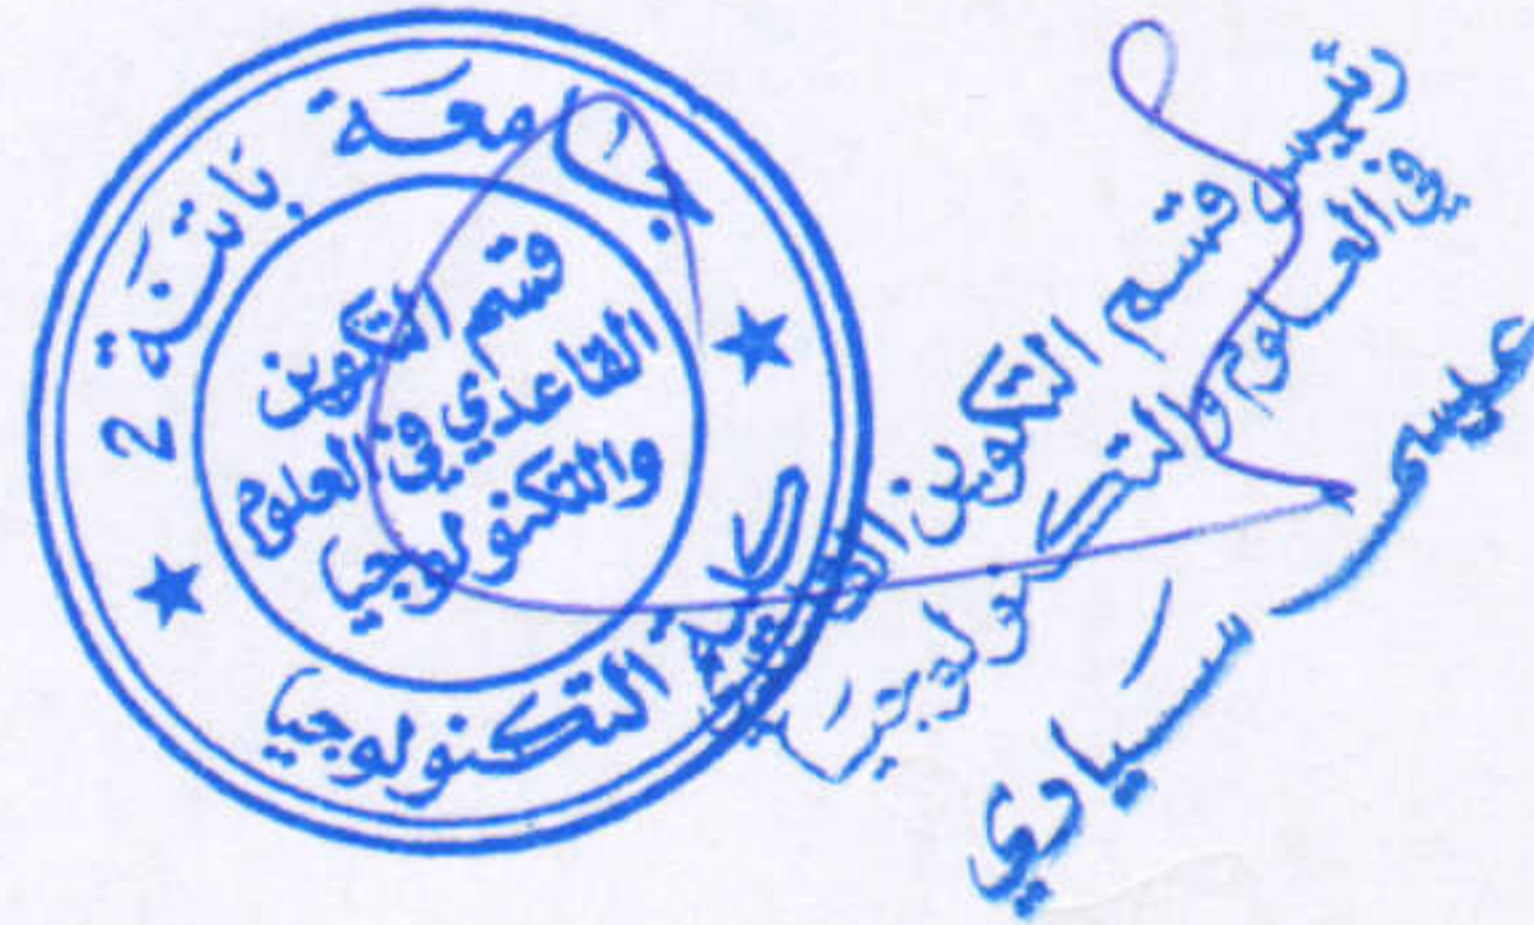 جامعة باتنة 2
قسم التكوين
القاعدي في العلوم
والتكنولوجيا
كلية التكنولوجيا
رئيس قسم التكوين القاعدي
في العلوم والتكنولوجيا
عيسى سيادي